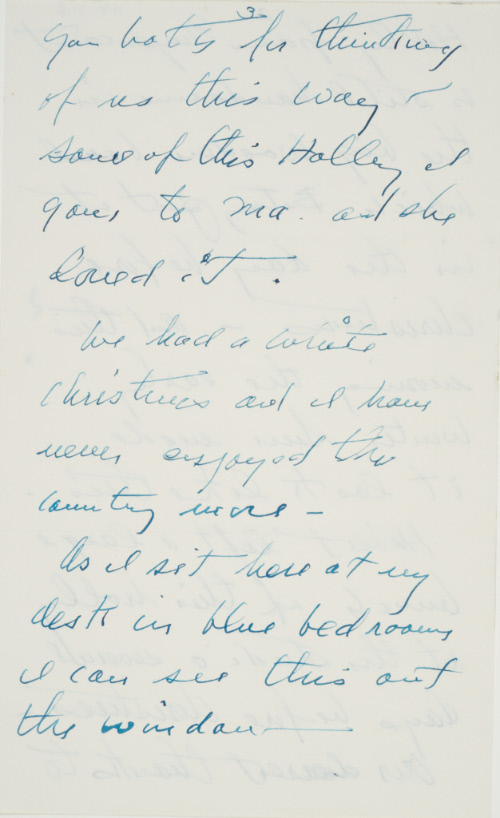 3
you both for thinking
of us this way -
some of this Holley I
gave to Ma. and she
loved it.
We had a white
Christmas and I have
never enjoyed the
country more -
As I sit here at my
desk in blue bedroom
I can see this out
the window -